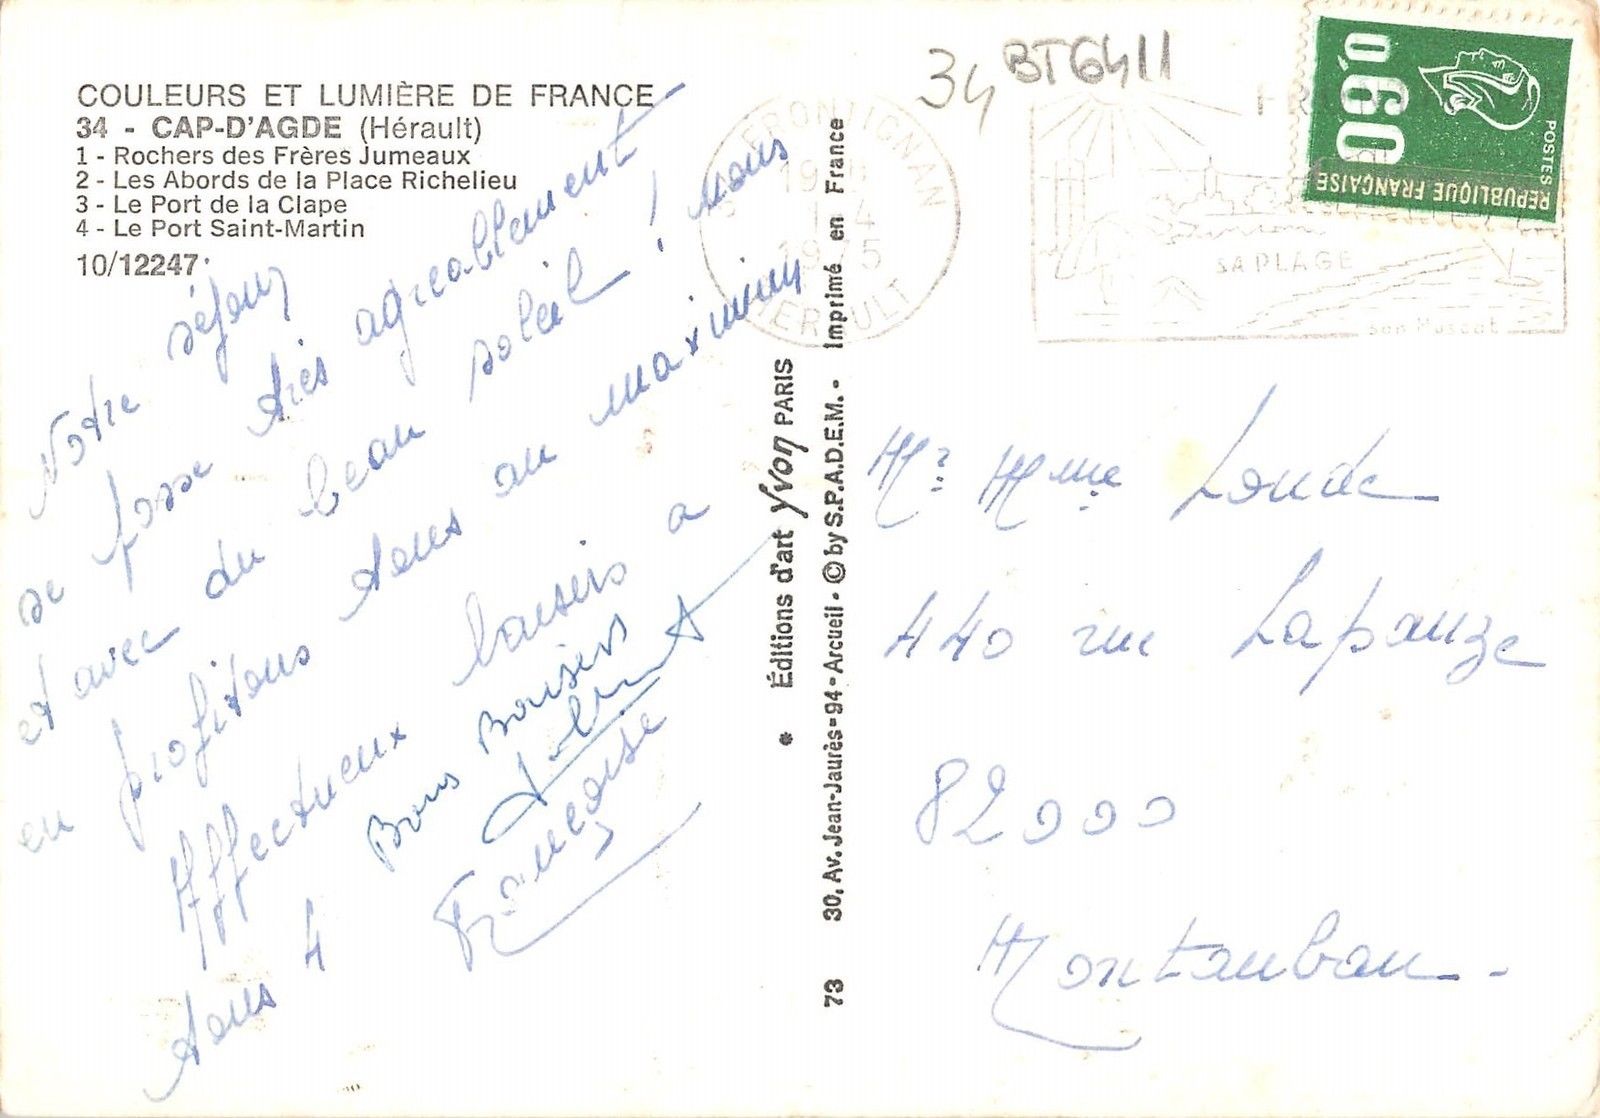 COULEURS ET LUMIÈRE DE FRANCE
34 - CAP-D'AGDE (Hérault)
1 - Rochers des Frères Jumeaux
2 - Les Abords de la Place Richelieu
3 - Le Port de la Clape
4 - Le Port Saint-Martin
10/12247
Notre séjour
se passe très agréablement
et avec du beau soleil ! nous
en profitons tous au maximum
Affectueux baisers à
tous 4
Bons Baisers
Françoise
* Éditions d'art Yvon PARIS
73 30, Av. Jean-Jaurès-94-Arcueil - © by S.P.A.D.E.M. - Imprimé en France
34 BT6411
FRONTIGNAN
1975
HERAULT
SA PLAGE
son Muscat
0,60
POSTES
REPUBLIQUE FRANÇAISE
Mr Mme Loude
440 rue Lapauze
82000
Montauban